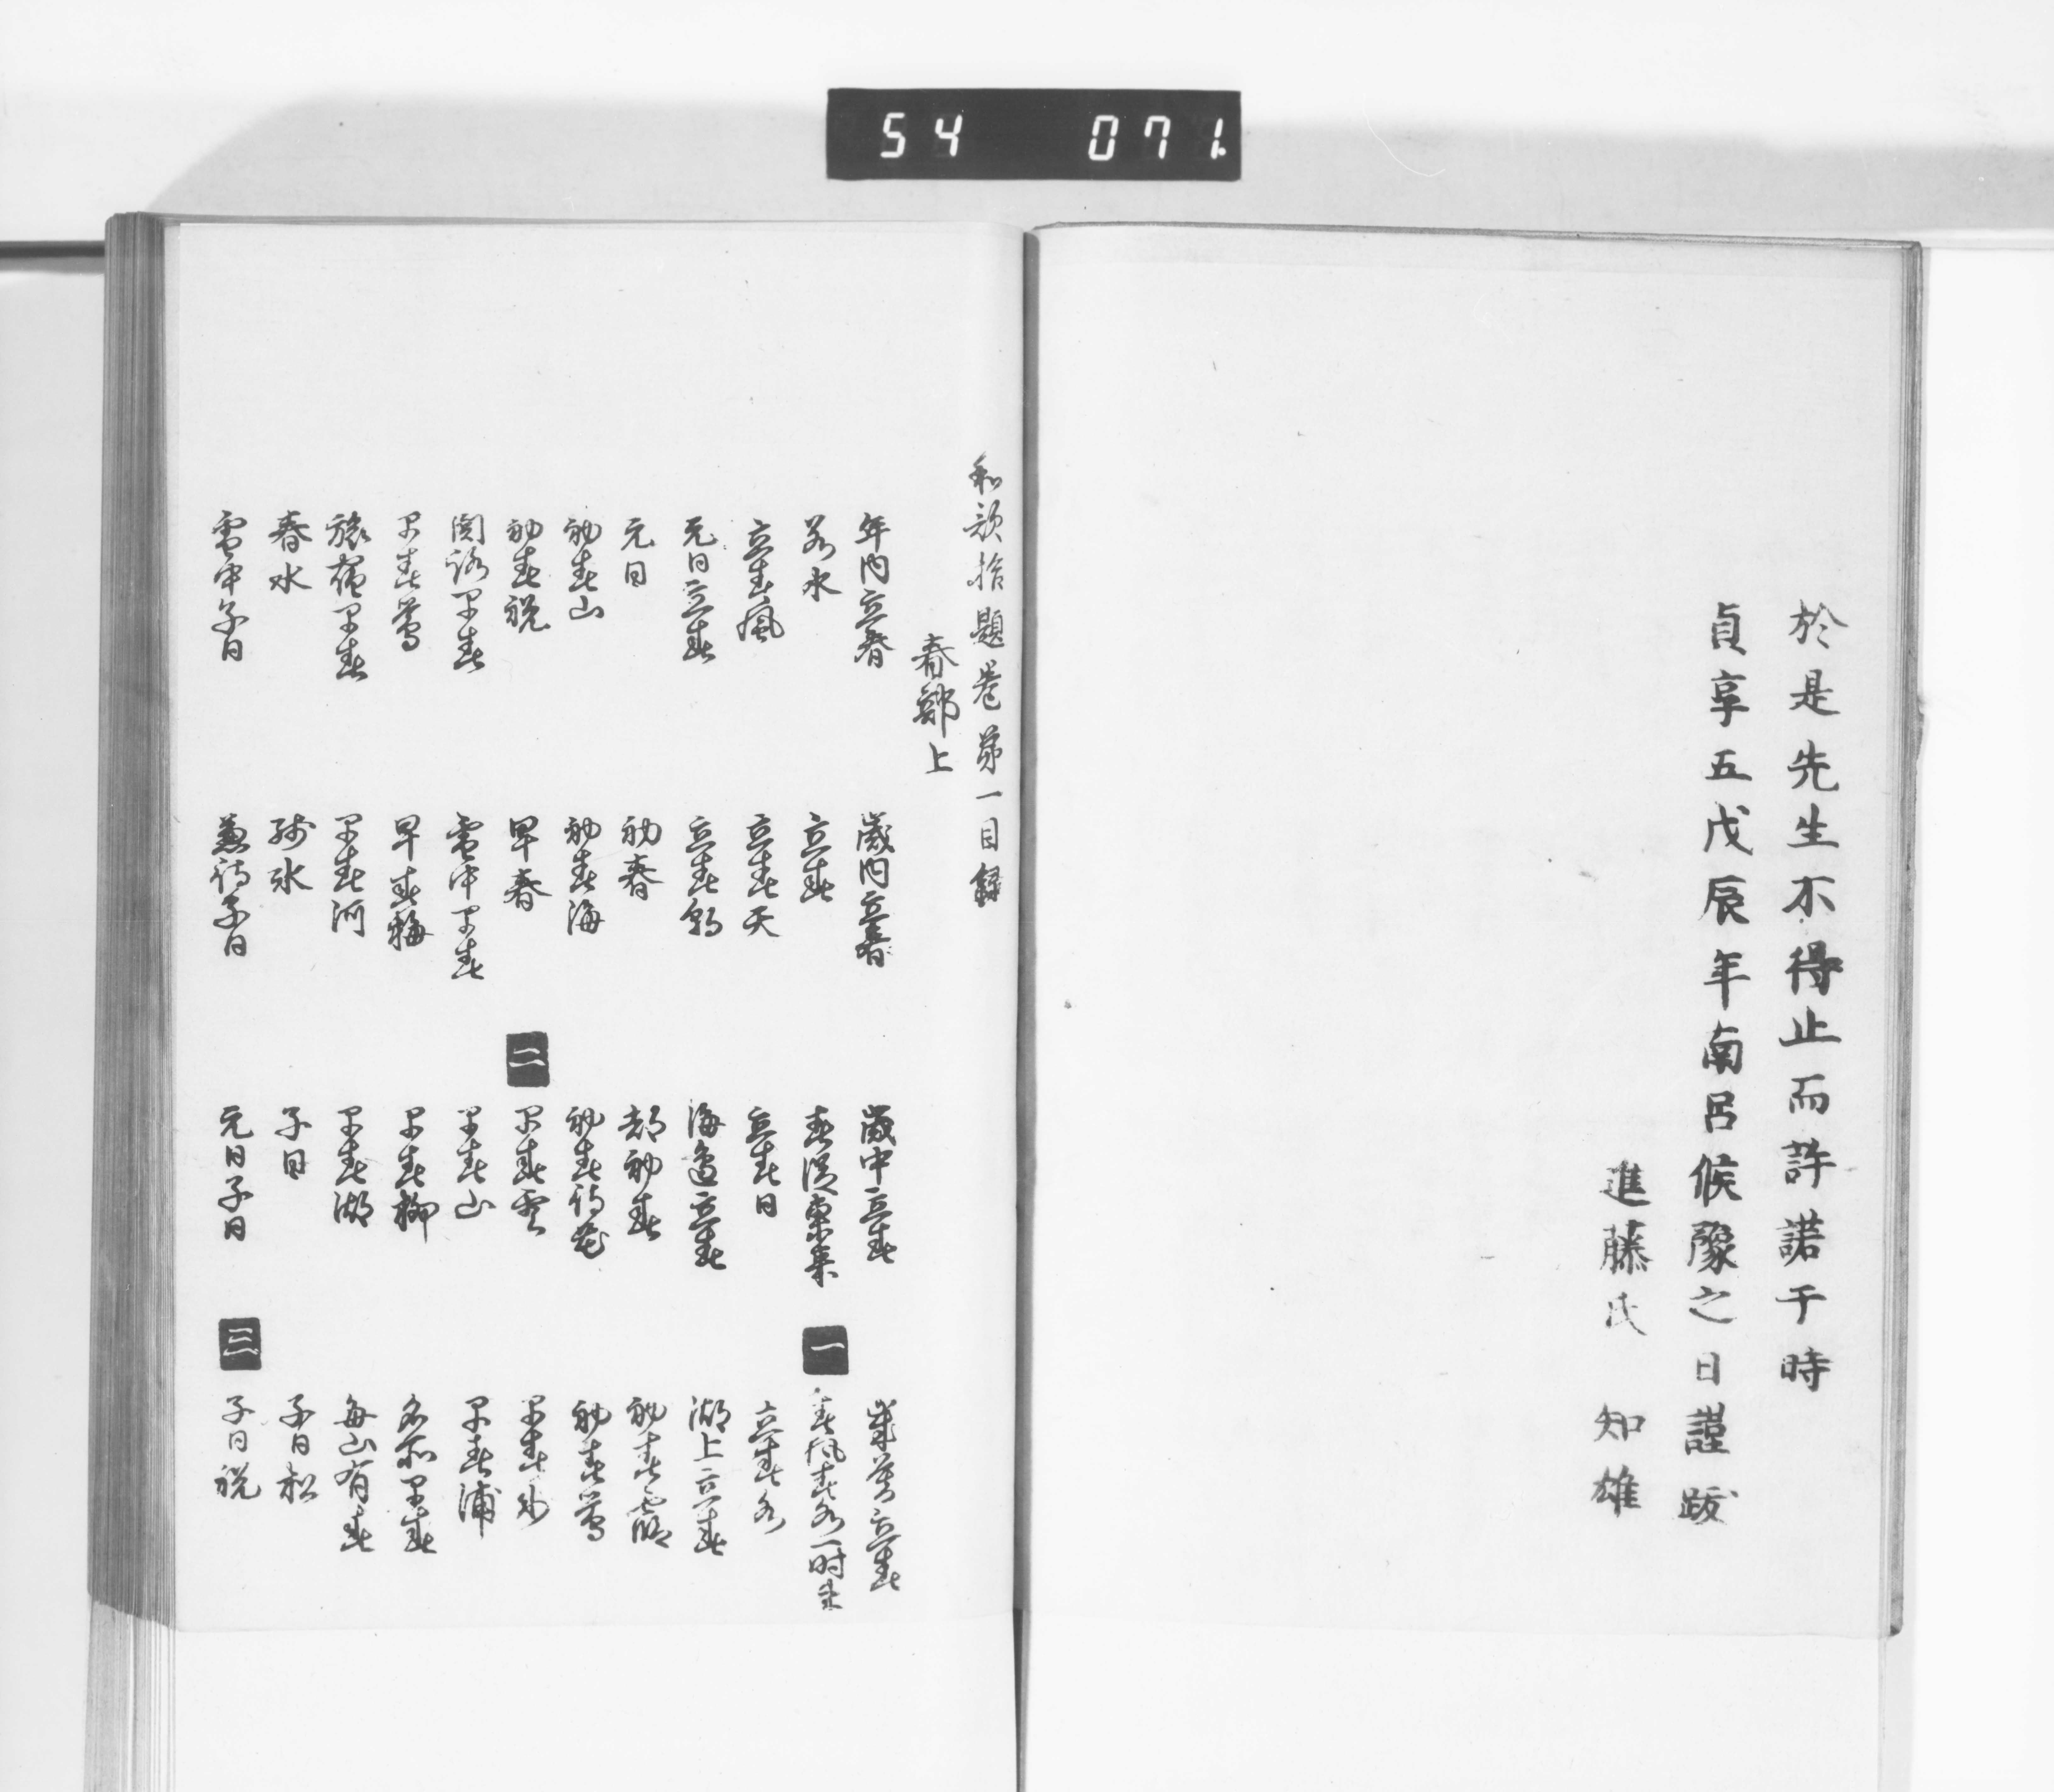 54 071
於是先生不得止而許諾于時
貞享五戊辰年南呂候豫之日謹跋
進藤氏 知雄
和歌拾題巻第一目録
春部上
年内立春 歳内立春 歳中立春 歳暮立春
若水 立春 春従東来 一 春風春水一時来
立春風 立春天 立春日 立春水
元日立春 立春朝 海邉立春 湖上立春
元日 初春 都初春 初春霞
初春山 初春海 初春待花 初春鶯
初春祝 早春 二 早春雲 早春
関路早春 雪中早春 早春山 早春浦
早春鶯 早春梅 早春柳 名所早春
旅宿早春 早春河 早春湖 毎山有春
春氷 残氷 子日 子日松
雪中子日 兼待子日 元日子日 三 子日祝